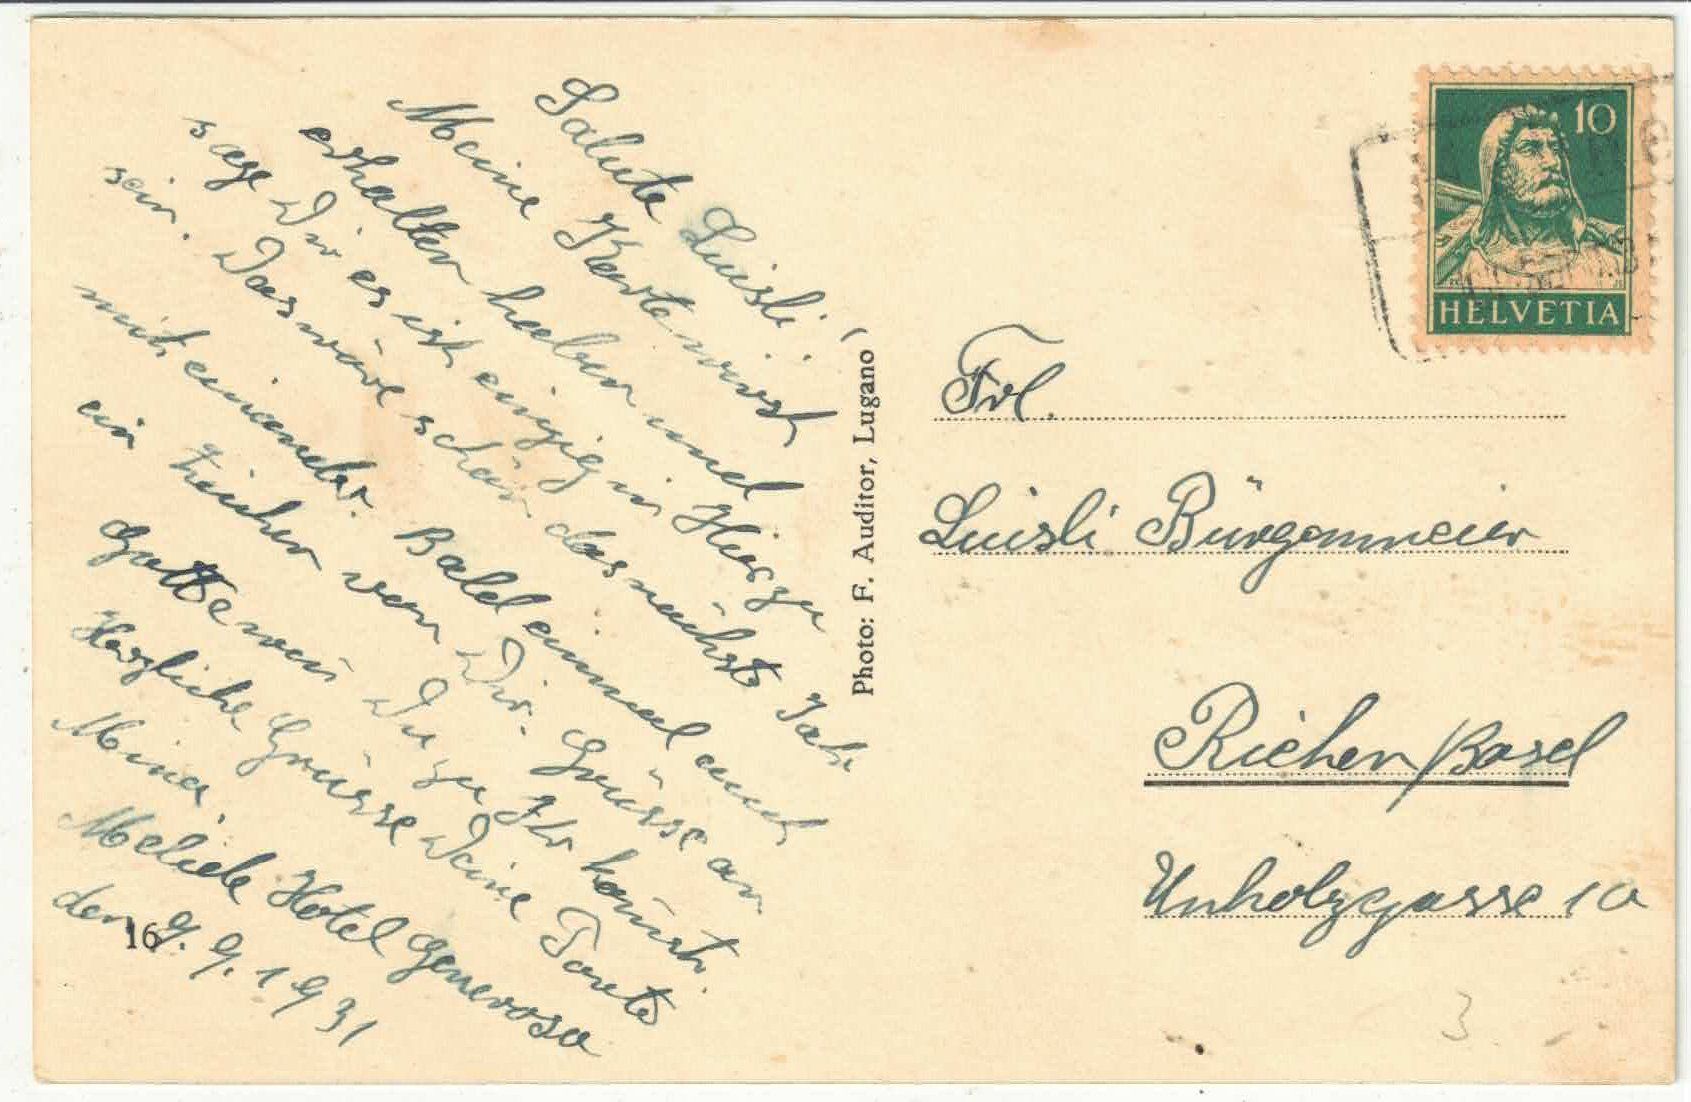 Salute Luisli!
Meine Karte wirst
erhalten haben und
sage Dir es ist einzig in Hier zu
sein. Das wäre schön das nächste Jahr
mit einander. Bald einmal auch
ein Zeichen von Dir. Grüsse an
Gotte wen Du zu Ihr komst.
Herzliche Grüsse Deine Tante
Mina.
Melide Hotel Generoso
den 9. 9. 1931
16
Photo: F. Auditor, Lugano
10
HELVETIA
Frl.
Luisli Bürgenmeier
Riehen/Basel
Unholzgasse 10
3